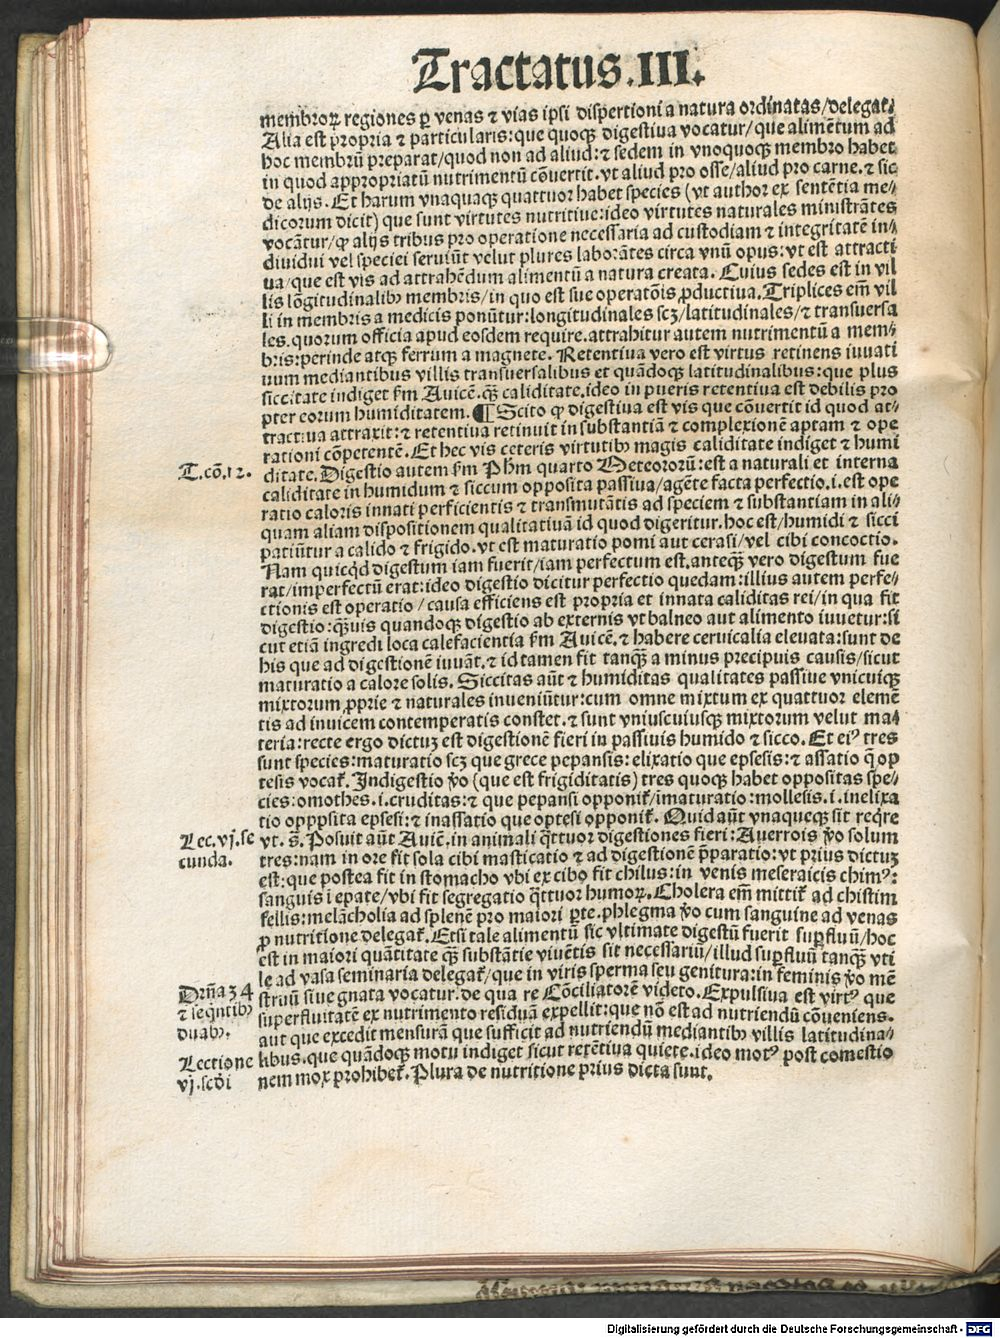 Tractatus.III.
membroꝝ regiones ꝑ venas ⁊ vias ipsi dispertioni a natura ordinatas/delegat.
Alia est propria ⁊ particularis:que quoqꝫ digestiua vocatur/que alimẽtum ad
hoc membrũ preparat/quod non ad aliud:⁊ sedem in vnoquoqꝫ membro habet
in quod appropriatũ nutrimentũ cõuertit.vt aliud pro osse/aliud pro carne.⁊ sic
de alijs.Et harum vnaquaqꝫ quattuor habet species (vt author ex sentẽtia me/
dicorum dicit) que sunt virtutes nutritiue:ideo virtutes naturales ministrãtes
vocãtur/ꝙ alijs tribus pro operatione necessaria ad custodiam ⁊ integritatẽ in/
diuidui vel speciei seruiũt velut plures laborãtes circa vnũ opus:vt est attracti
ua/que est vis ad attrahẽdum alimentũ a natura creata.Cuius sedes est in vil
lis lõgitudinalibꝫ membris/in quo est sue operatõis ꝓductiua.Triplices em̃ vil
li in membris a medicis ponũtur:longitudinales scꝫ/latitudinales/⁊ transuersa
les.quorum officia apud eosdem require.attrahitur autem nutrimentũ a mem/
bris:perinde atqꝫ ferrum a magnete. Retentiua vero est virtus retinens iuuati
uum mediantibus villis transuersalibus et quãdoqꝫ latitudinalibus:que plus
siccitate indiget ẜm Auicẽ.qꝫ̃ caliditate.ideo in pueris retentiua est debilis pro
pter eorum humiditatem.¶Scito ꝙ digestiua est vis que cõuertit id quod at/
tractiua attraxit:⁊ retentiua retinuit in substantiã ⁊ complexionẽ aptam ⁊ ope
rationi cõpetentẽ. Et hec vis ceteris virtutibꝫ magis caliditate indiget ⁊ humi
T.cõ.12. ditate.Digestio autem ẜm Phm quarto Meteororũ:est a naturali et interna
caliditate in humidum ⁊ siccum opposita passiua/agẽte facta perfectio.i.est ope
ratio caloris innati perficientis ⁊ transmutãtis ad speciem ⁊ substantiam in ali/
quam aliam dispositionem qualitatiuã id quod digeritur.hoc est/humidi ⁊ sicci
patiũtur a calido ⁊ frigido.vt est maturatio pomi aut cerasi/vel cibi concoctio.
Nam quicqd digestum iam fuerit/iam perfectum est.anteqꝫ̃ vero digestum fue
rat/imperfectũ erat:ideo digestio dicitur perfectio quedam:illius autem perfe/
ctionis est operatio/causa efficiens est propria et innata caliditas rei/in qua fit
digestio:qꝫ̃uis quandoqꝫ digestio ab externis vt balneo aut alimento iuuetur:si
cut etiã ingredi loca calefacientia ẜm Auicẽ.⁊ habere ceruicalia eleuata:sunt de
his que ad digestionẽ iuuãt.⁊ id tamen fit tanqꝫ̃ a minus precipuis causis/sicut
maturatio a calore solis. Siccitas aũt ⁊ humiditas qualitates passiue vnicuiqꝫ
mixtorum ꝓprie ⁊ naturales inueniũtur:cum omne mixtum ex quattuor elemẽ
tis ad inuicem contemperatis constet.⁊ sunt vniuscuiusqꝫ mixtorum velut ma/
teria:recte ergo dictuꝫ est digestionẽ fieri in passiuis humido ⁊ sicco. Et eiꝰ tres
sunt species:maturatio scꝫ que grece pepansis:elixatio que epsesis:⁊ assatio q̃ op
tesis vocat̃. Indigestio ꝟo (que est frigiditatis) tres quoqꝫ habet oppositas spe/
cies:omothes.i.cruditas:⁊ que pepansi opponit̃/imaturatio:mollesis.i.inelixa
tio opposita epsesi:⁊ inassatio que optesi opponit̃. Quid aũt vnaqueqꝫ sit reqre
Lec.vj.se vt.s̃.Posuit aũt Auiẽ.in animali q̃ttuor digestiones fieri:Auerrois ꝟo solum
cunda. tres:nam in ore fit sola cibi masticatio ⁊ ad digestionẽ ꝑparatio:vt prius dictuꝫ
est:que postea fit in stomacho vbi ex cibo fit chilus:in venis meseraicis chimꝰ:
sanguis i epate/vbi fit segregatio q̃ttuor humoꝝ.Cholera em̃ mittit̃ ad chistim
fellis:melãcholia ad splenẽ pro maiori ꝑte.phlegma ꝟo cum sanguine ad venas
ꝓ nutritione delegat̃.Etsi tale alimentũ sic vltimate digestũ fuerit suꝑfluũ/hoc
est in maiori quãtitate qꝫ̃ substãtie viuẽtis sit necessariũ/illud suꝑfluũ tanqꝫ̃ vti
le ad vasa seminaria delegat̃/que in viris sperma seu genitura:in feminis ꝟo mẽ
Drñia 34 struũ siue gnata vocatur.de qua re Cõciliatorẽ videto.Expulsiua est virtꝰ que
⁊ seqntibꝫ superfluitatẽ ex nutrimento residuã expellit:que nõ est ad nutriendũ cõueniens.
duabꝫ. aut que excedit mensurã que sufficit ad nutriendũ mediantibꝫ villis latitudina/
Lectione libus.que quãdoqꝫ motu indiget sicut retẽtiua quiete.ideo motꝰ post comestio
vj.scd̃i nem mox prohibet̃.Plura de nutritione prius dicta sunt.
Digitalisierung gefördert durch die Deutsche Forschungsgemeinschaft - DFG